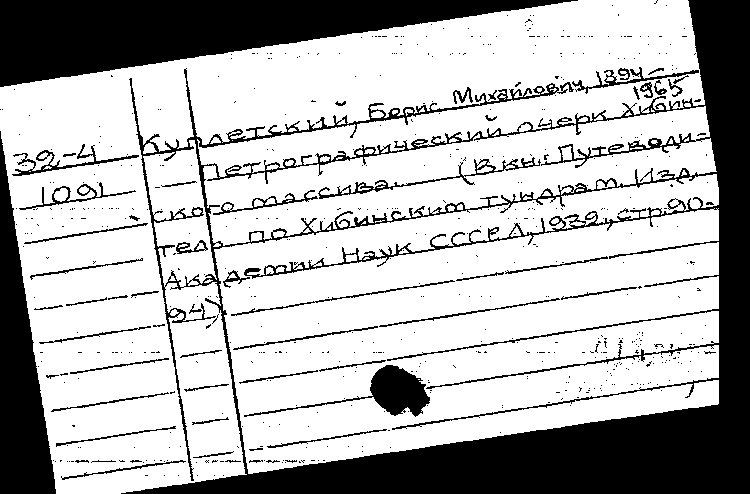 Куплетский, Борис Михайлович, 1894-
1965
32-4
1091
Петрографический очерк Хибин-
ского массива. (В кн.: Путеводи-
тель по Хибинским тундрам. Изд.
Академии Наук СССР, Л, 1932, стр. 90-
94).